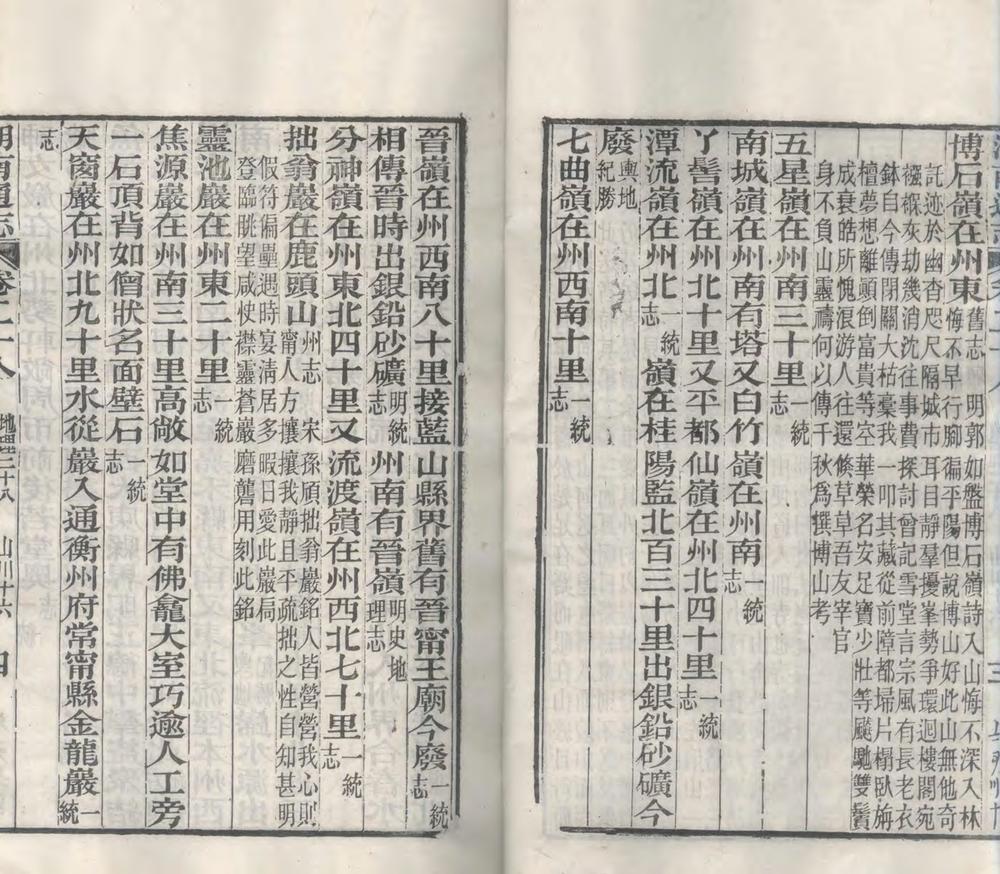 博石嶺在州東舊志 明郭如盤博石嶺詩入山悔不深入林
悔不早行腳徧平陽但說博山好此山無他奇
託迹於幽杳咫尺隔城市耳目靜羣擾峯勢爭環迴樓閣宛
襁褓灰劫幾消沈往事費探討曾記雪堂言宗風有長老衣
鉢自今傳閉關大枯槀我一叩其藏從前障都埽片榻臥旃
檀夢想離顚倒富貴等空華榮名安足寶少壯等飈馳雙鬢
成衰皓所愧浪游人往還倏草草吾友宰官
身不負山靈禱何以傳千秋爲撰博山考
五星嶺在州南三十里一統志
南城嶺在州南有塔又白竹嶺在州南一統志
丫髻嶺在州北十里又平都仙嶺在州北四十里一統志
潭流嶺在州北一統志 嶺在桂陽監北百三十里出銀鉛砂礦今
廢輿地紀勝
七曲嶺在州西南十里一統志
晉嶺在州西南八十里接藍山縣界舊有晉甯王廟今廢一統志
相傳晉時出銀鉛砂礦明統志 州南有晉嶺明史地理志
分神嶺在州東北四十里又流渡嶺在州西北七十里一統志
拙翁巖在鹿頭山州志 宋孫頎拙翁巖銘人皆營營我心則
甯人方攘攘我靜且平疏拙之性自知甚明
假符偏壘遇時宴淸居多暇日愛此巖局
登臨眺望咸快襟靈蒼巖磨礲用刻此銘
靈池巖在州東二十里一統志
焦源巖在州南三十里高敞如堂中有佛龕大室巧逾人工旁
一石頂背如僧狀名面壁石一統志
天窗巖在州北九十里水從巖入通衡州府常甯縣金龍巖一統
志
湖南通志 卷二十八 地理二十八 山川十六 四